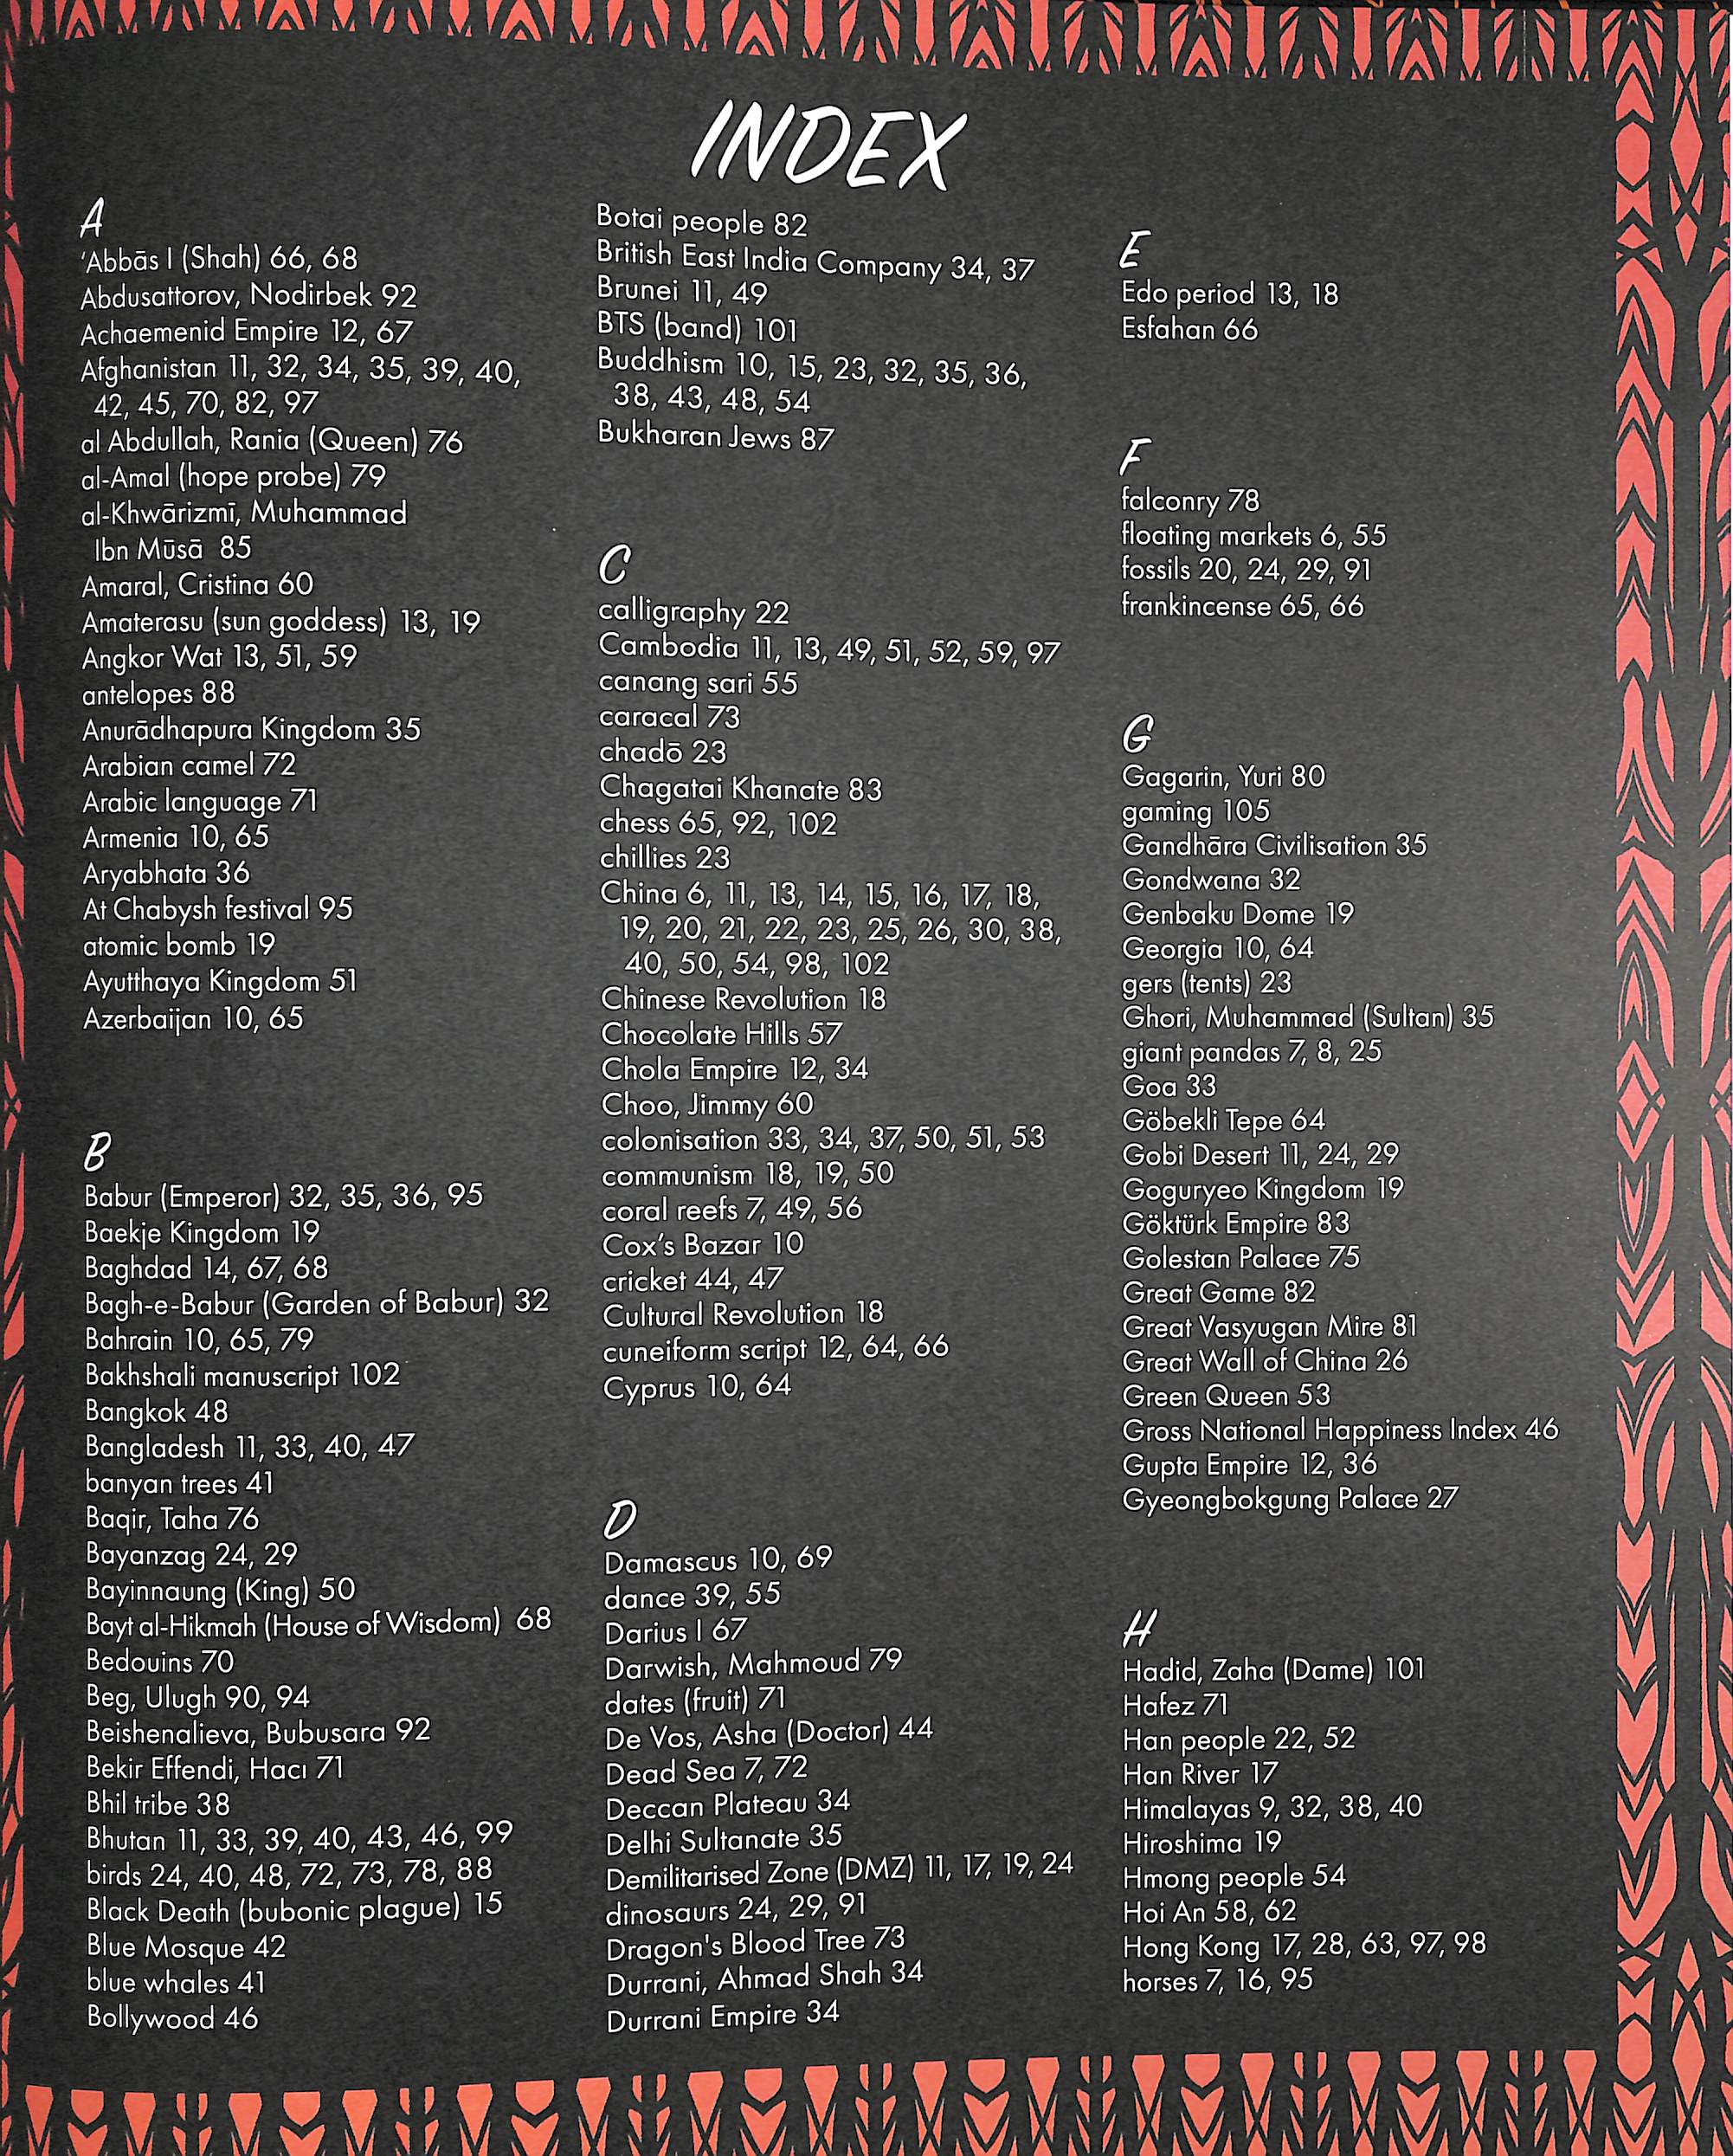 INDEX
A
‘Abbās I (Shah) 66, 68
Abdusattorov, Nodirbek 92
Achaemenid Empire 12, 67
Afghanistan 11, 32, 34, 35, 39, 40,
42, 45, 70, 82, 97
al Abdullah, Rania (Queen) 76
al-Amal (hope probe) 79
al-Khwārizmī, Muhammad
Ibn Mūsā 85
Amaral, Cristina 60
Amaterasu (sun goddess) 13, 19
Angkor Wat 13, 51, 59
antelopes 88
Anurādhapura Kingdom 35
Arabian camel 72
Arabic language 71
Armenia 10, 65
Aryabhata 36
At Chabysh festival 95
atomic bomb 19
Ayutthaya Kingdom 51
Azerbaijan 10, 65
B
Babur (Emperor) 32, 35, 36, 95
Baekje Kingdom 19
Baghdad 14, 67, 68
Bagh-e-Babur (Garden of Babur) 32
Bahrain 10, 65, 79
Bakhshali manuscript 102
Bangkok 48
Bangladesh 11, 33, 40, 47
banyan trees 41
Baqir, Taha 76
Bayanzag 24, 29
Bayinnaung (King) 50
Bayt al-Hikmah (House of Wisdom) 68
Bedouins 70
Beg, Ulugh 90, 94
Beishenalieva, Bubusara 92
Bekir Effendi, Hacı 71
Bhil tribe 38
Bhutan 11, 33, 39, 40, 43, 46, 99
birds 24, 40, 48, 72, 73, 78, 88
Black Death (bubonic plague) 15
Blue Mosque 42
blue whales 41
Bollywood 46
Botai people 82
British East India Company 34, 37
Brunei 11, 49
BTS (band) 101
Buddhism 10, 15, 23, 32, 35, 36,
38, 43, 48, 54
Bukharan Jews 87
C
calligraphy 22
Cambodia 11, 13, 49, 51, 52, 59, 97
canang sari 55
caracal 73
chadō 23
Chagatai Khanate 83
chess 65, 92, 102
chillies 23
China 6, 11, 13, 14, 15, 16, 17, 18,
19, 20, 21, 22, 23, 25, 26, 30, 38,
40, 50, 54, 98, 102
Chinese Revolution 18
Chocolate Hills 57
Chola Empire 12, 34
Choo, Jimmy 60
colonisation 33, 34, 37, 50, 51, 53
communism 18, 19, 50
coral reefs 7, 49, 56
Cox’s Bazar 10
cricket 44, 47
Cultural Revolution 18
cuneiform script 12, 64, 66
Cyprus 10, 64
D
Damascus 10, 69
dance 39, 55
Darius I 67
Darwish, Mahmoud 79
dates (fruit) 71
De Vos, Asha (Doctor) 44
Dead Sea 7, 72
Deccan Plateau 34
Delhi Sultanate 35
Demilitarised Zone (DMZ) 11, 17, 19, 24
dinosaurs 24, 29, 91
Dragon's Blood Tree 73
Durrani, Ahmad Shah 34
Durrani Empire 34
E
Edo period 13, 18
Esfahan 66
F
falconry 78
floating markets 6, 55
fossils 20, 24, 29, 91
frankincense 65, 66
G
Gagarin, Yuri 80
gaming 105
Gandhāra Civilisation 35
Gondwana 32
Genbaku Dome 19
Georgia 10, 64
gers (tents) 23
Ghori, Muhammad (Sultan) 35
giant pandas 7, 8, 25
Goa 33
Göbekli Tepe 64
Gobi Desert 11, 24, 29
Goguryeo Kingdom 19
Göktürk Empire 83
Golestan Palace 75
Great Game 82
Great Vasyugan Mire 81
Great Wall of China 26
Green Queen 53
Gross National Happiness Index 46
Gupta Empire 12, 36
Gyeongbokgung Palace 27
H
Hadid, Zaha (Dame) 101
Hafez 71
Han people 22, 52
Han River 17
Himalayas 9, 32, 38, 40
Hiroshima 19
Hmong people 54
Hoi An 58, 62
Hong Kong 17, 28, 63, 97, 98
horses 7, 16, 95